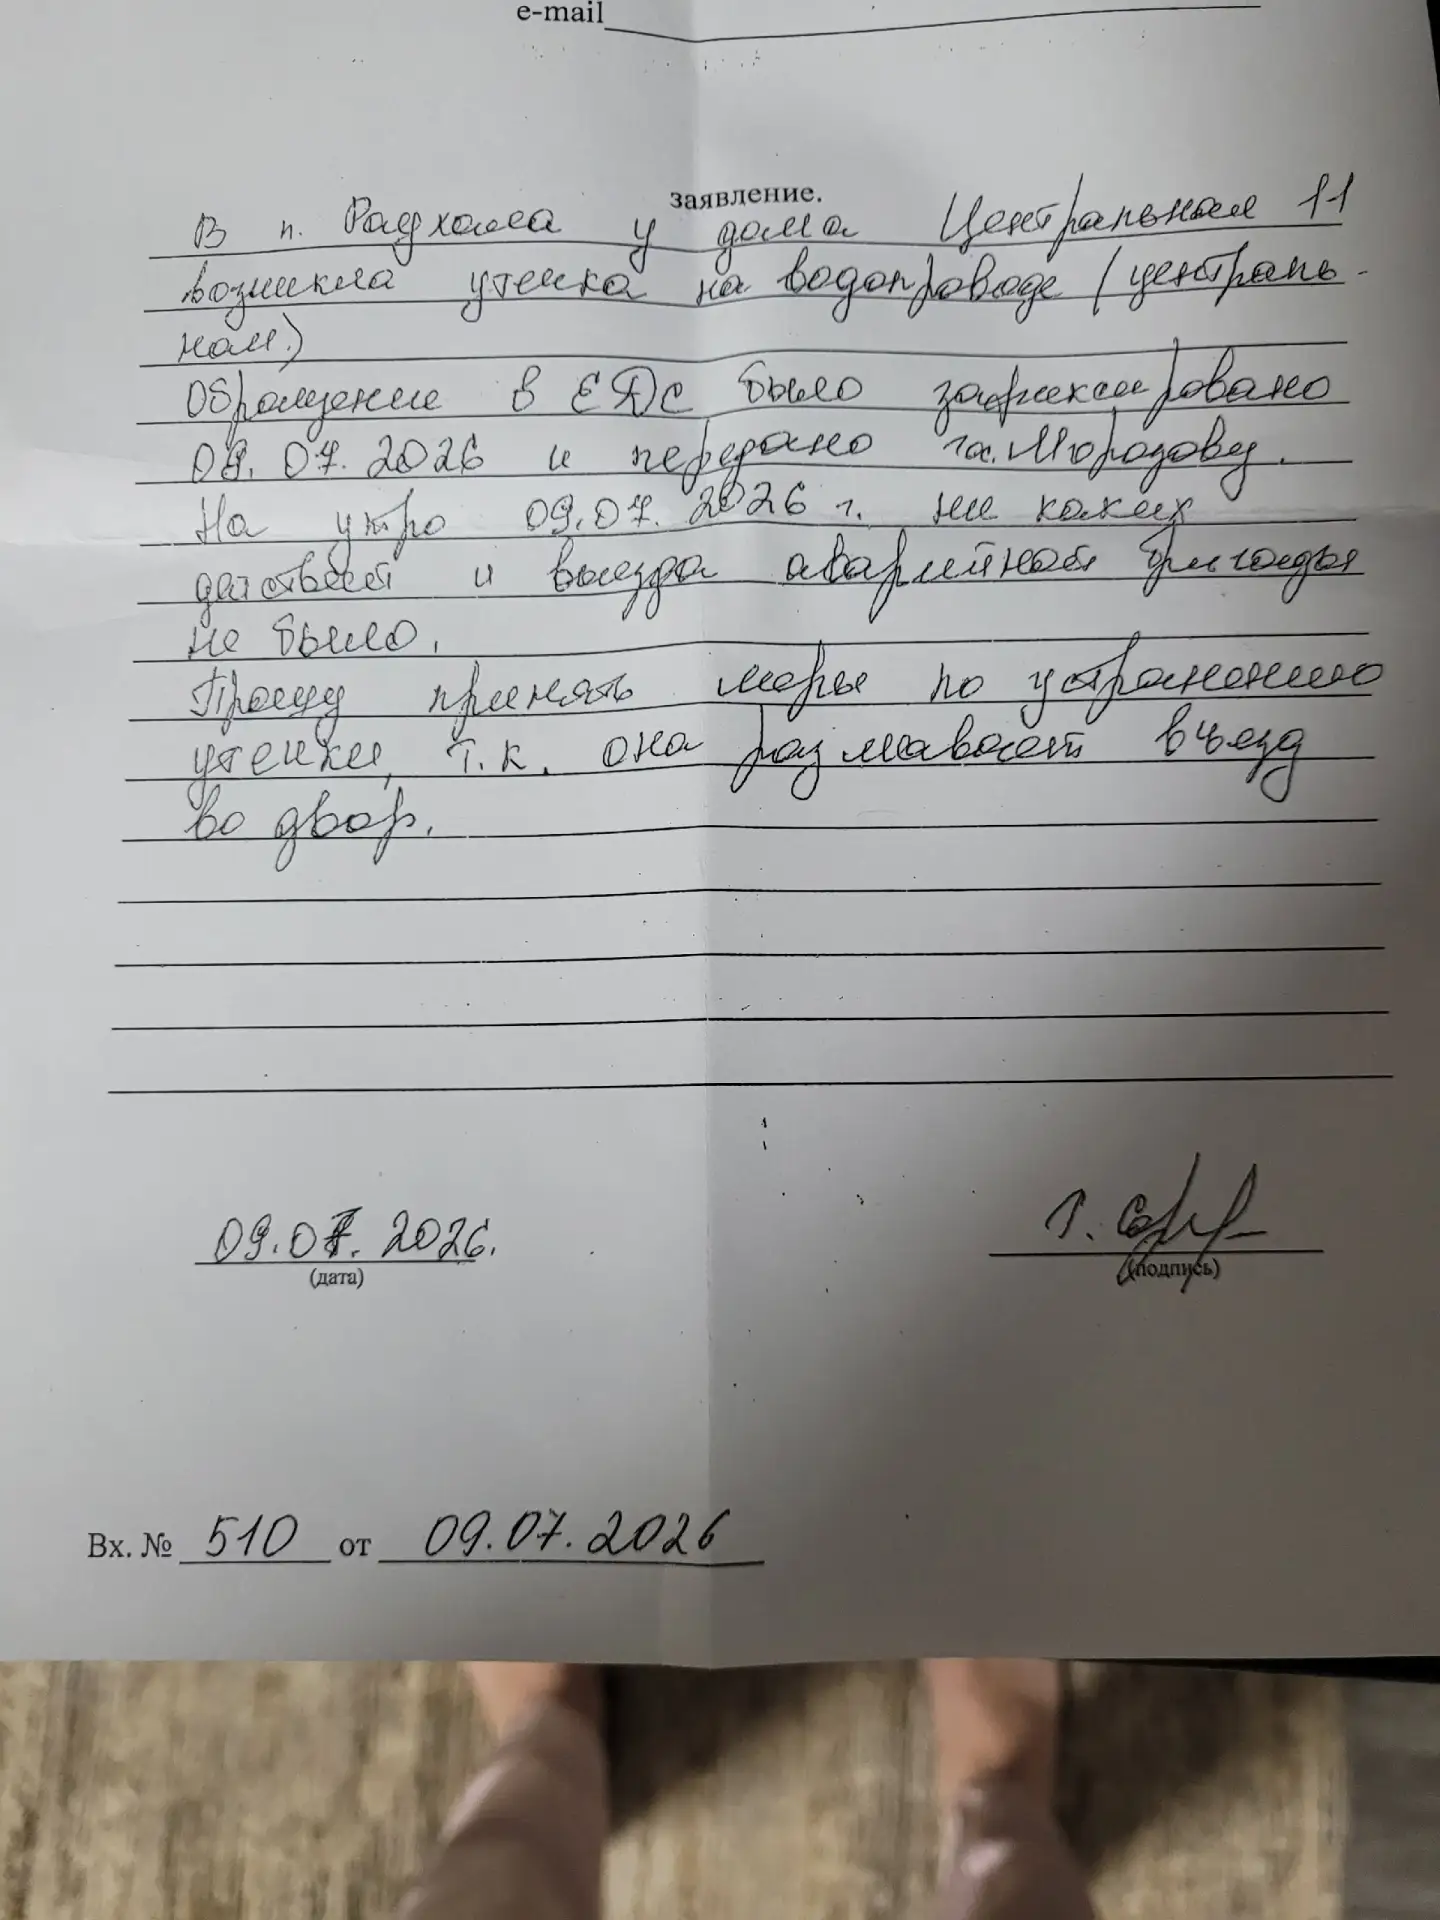 e-mail
заявление.
В п. Радхола у дома Центральная 11
возникла утечка на водопроводе (централь-
ном.)
Обращение в ЕДДС было зафиксировано
08.07.2026 и передано гл. Морозову.
На утро 09.07.2026 г. ни каких
действий и выезда аварийной бригады
не было.
Прошу принять меры по устранению
утечки, т.к. она размывает въезд
во двор.
09.07.2026.
(дата)
(подпись)
Вх. № 510 от 09.07.2026